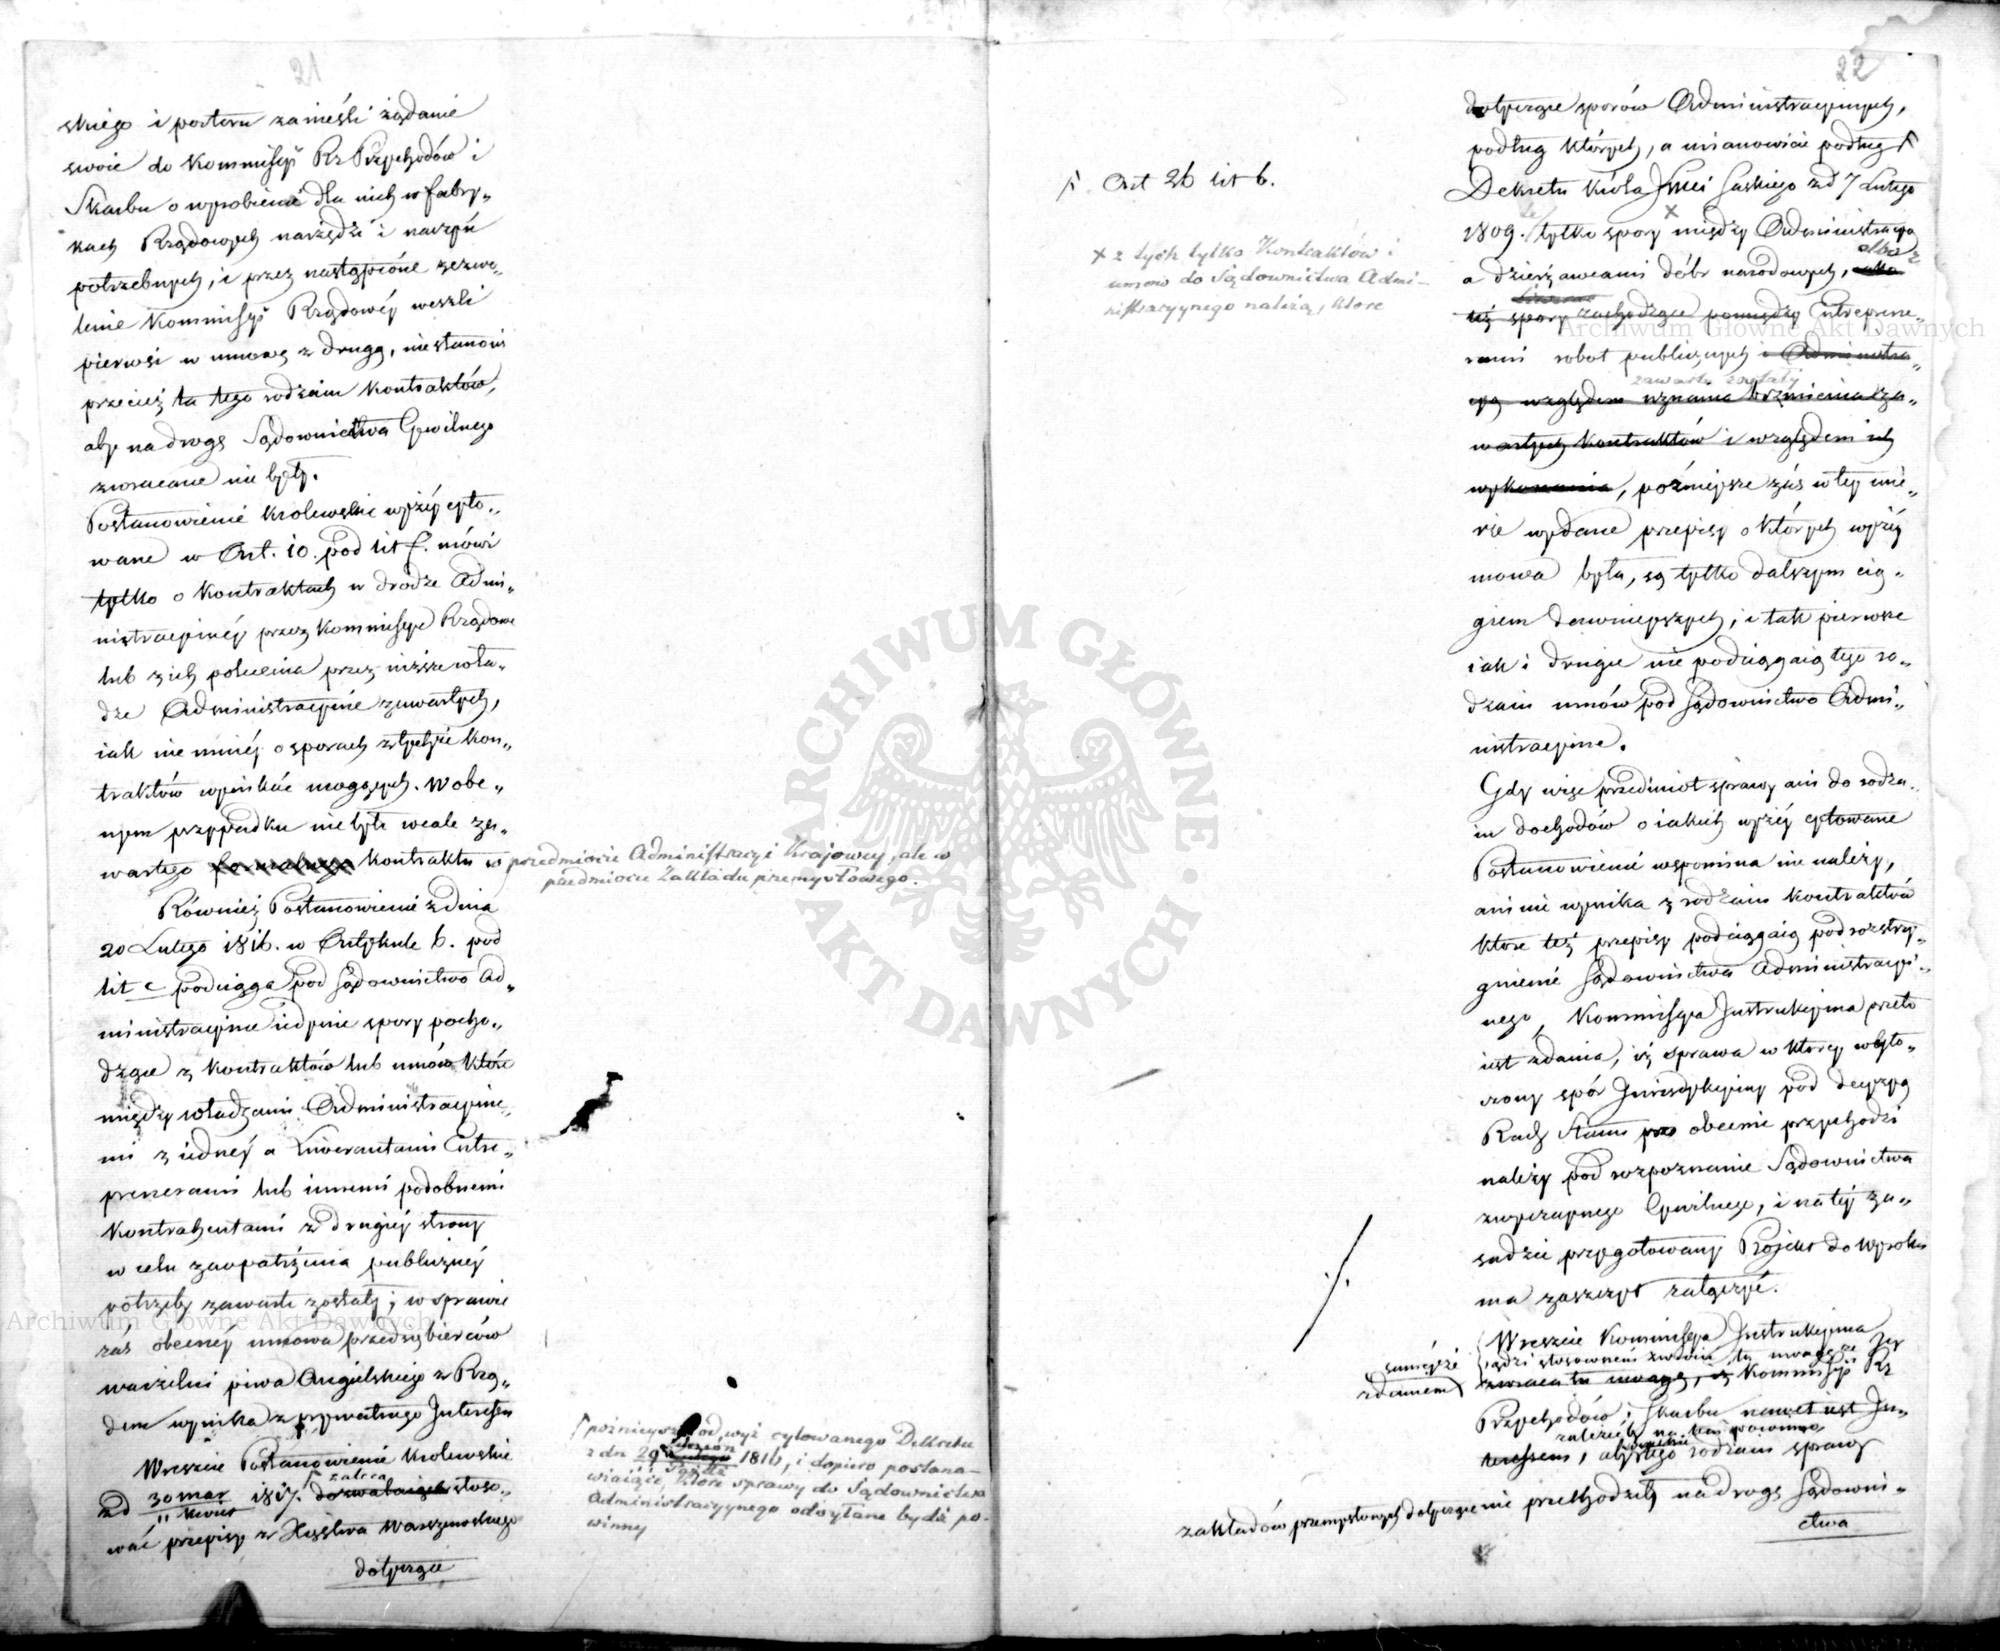 21
skiego i potem zanieśli żądanie
swoie do Kommissyi Rz Przychodów i
Skarbu o wyrobienie dla nich w fabry„
kach Rządowych narzędzi i naczyń
potrzebnych, i przez nastąpione zezwo„
lenie Kommissyi Rządowéy weszli
pierwsi w umowę z drugą, nie stanowi
przecież ta tego rodzaiu kontraktów,
aby na drogę Sądownictwa Cywilnego
zwracane nie były.
Postanowienie Krolewskie wyżéy cyto„
wane w Art. 10. pod lit f. mówi
tylko o kontraktach w drodze Admi„
nistracyinéy przez Kommissye Rządowe
lub z ich polecenia przez niższe wła„
dze Administracyine zawartych,
iak nie mniéy o sporach z tychże kon„
traktów wyniknąć mogących. W obe„
cnym przypadku nie było wcale za„
wartego formalnego kontraktu w przedmiocie Administracyi Kraiowey, ale w
przedmiocie Zakładu przemysłowego.
Również Postanowienie z dnia
20 Lutego 1816. w Artykule 6. pod
lit c podciąga pod Sądownictwo Ad„
ministracyine iedynie spory pocho„
dzące z kontraktów lub umów które
między władzami Administracyine„
mi z iednéy a Liwerantami Entre„
prenerami lub innemi podobnemi
Kontrahentami z drugiéy strony
w celu zaopatrzenia publicznéy
potrzeby zawarte zostały; w sprawie
zaś obecnéy umowa przedsiębierców
warzelni piwa Angielskiego z Rzą„
dem wynika z prywatnego Interessu
Wreszcie Postanowienie Krolewskie
zaleca
zd 30 mar 1817. dozwalaiące stoso„
11 kwiet
wać przepisy z Xięstwa Warszawskiego
dotyczące
późnieysze od wyż cytowanego Dekretu
z dn 29 1816, i dopiero postana„
wiaiące, które sprawy do Sądownictwa
Administracyynego odsyłane bydź po„
winny
22
Art 26 lit b.
x z tych tylko Kontraktów i
umów do Sądownictwa Admi„
nistracyynego należą, które
dotyczące sporów Administracyinych,
podług których, a mianowicie podług
Dekretu Króla Jmci Saskiego z d 7 Lutego
1809. tylko spory między Administracyą
albo z
a dzierżawcami dóbr narodowych, albo
też spory zachodzące pomiędzy Entreprene„
rami robot publicznych i Administra„
zawarte zostały
cyą względem uznania brzmienia za„
wartych kontraktów i względem ich
wykonania, poźnieysze zaś w téy mie„
rze wydane przepisy o których wyżéy
mowa była, są tylko dalszym cią„
giem dawnieyszych; i tak pierwsze
iak i drugie nie podciągaią tego ro„
dzaiu umów pod Sądownictwo Admi„
nistracyine.
Gdy więc przedmiot sprawy ani do rodza„
iu dochodów o iakich wyżéy cytowane
Postanowienie wspomina nie należy,
ani nie wynika z rodzaiu kontraktów
które też przepisy podciągaią pod rozstrzy„
gnienie Sądownictwa Administracyi„
nego, Kommissya Instrukcyina przeto
iest zdania, iż sprawa w którey wyto„
czony spór Jurisdykcyiny pod decyzyą
Rady Stanu obecnie przychodzi
należy pod rozpoznanie Sądownictwa
zwyczaynego Cywilnego, i na téy za„
sadzie przygotowany Projekt do wyroku
ma zaszczyt załączyć.
Wreszcie Kommissya Instrukcyina
zwraca tu uwagę, iż Kommissyi Rz
zdaniem
Przychodów i Skarbu nawet iest In„
teressem, aby tego rodzaiu sprawy
zakładów przemysłowych dotyczące nie przechodziły na drogę Sądowni„
ctwa
ARCHIWUM GŁÓWNE AKT DAWNYCH
Archiwum Główne Akt Dawnych
Archiwum Główne Akt Dawnych